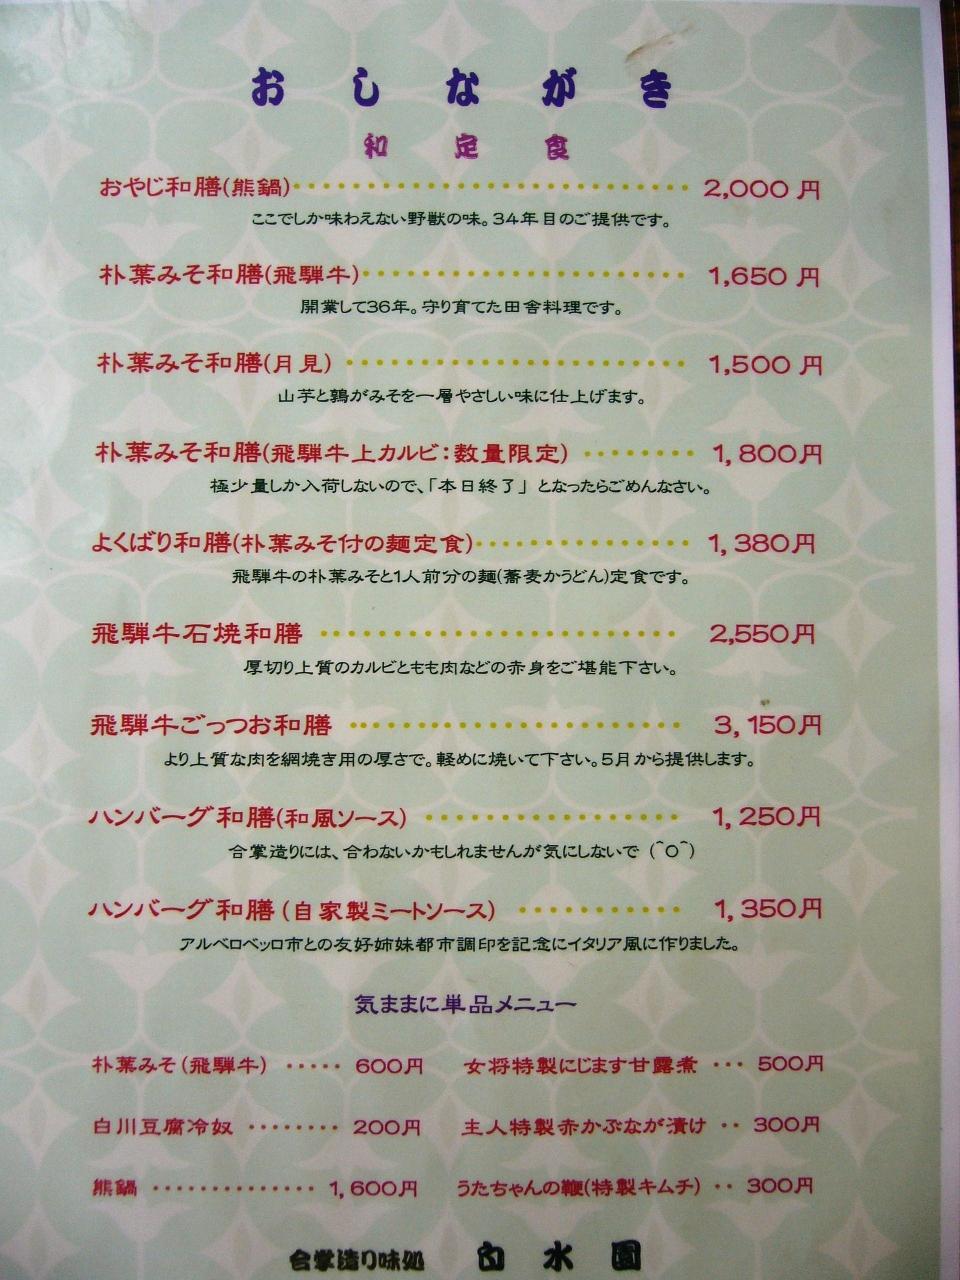 おしながき
和定食
おやじ和膳(熊鍋)・・・・・・・・・・・・・・・・・・・・・・・・・・・ 2,000 円
ここでしか味わえない野獣の味。34年目のご提供です。
朴葉みそ和膳(飛騨牛)・・・・・・・・・・・・・・・・・・・・・・ 1,650 円
開業して36年。守り育てた田舎料理です。
朴葉みそ和膳(月見) ・・・・・・・・・・・・・・・・・・・・・・・ 1,500 円
山芋と鶉がみそを一層やさしい味に仕上げます。
朴葉みそ和膳(飛騨牛上カルビ:数量限定) ・・・・・・・・ 1,800円
極少量しか入荷しないので、「本日終了」となったらごめんなさい。
よくばり和膳(朴葉みそ付の麺定食)・・・・・・・・・・・・・・・ 1,380円
飛騨牛の朴葉みそと1人前分の麺(蕎麦かうどん)定食です。
飛騨牛石焼和膳 ・・・・・・・・・・・・・・・・・・・・・・・・ 2,550円
厚切り上質のカルビともも肉などの赤身をご堪能下さい。
飛騨牛ごっつお和膳 ・・・・・・・・・・・・・・・・・・・・・・ 3,150円
より上質な肉を網焼き用の厚さで。軽めに焼いて下さい。5月から提供します。
ハンバーグ和膳(和風ソース) ・・・・・・・・・・・・・・・・・ 1,250円
合掌造りには、合わないかもしれませんが気にしないで (^O^)
ハンバーグ和膳(自家製ミートソース) ・・・・・・・・・・・ 1,350円
アルベロベッロ市との友好姉妹都市調印を記念にイタリア風に作りました。
気ままに単品メニュー
朴葉みそ(飛騨牛) ・・・・・ 600円 女将特製にじます甘露煮 ・・・ 500円
白川豆腐冷奴 ・・・・・・・・ 200円 主人特製赤かぶなが漬け ・・ 300円
熊鍋 ・・・・・・・・・・・・・・ 1,600円 うたちゃんの鞭(特製キムチ) ・・ 300円
合掌造り味処 白水園